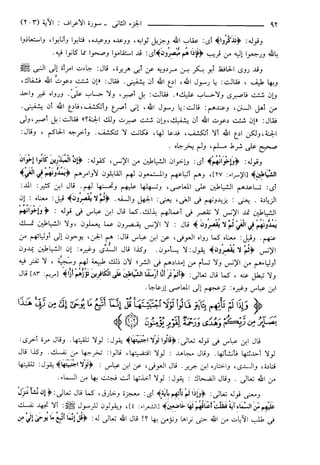 ٩٢ الجزء الثاني - سورة الأعراف: الآية (٢٠٣)
وقوله: ﴿تَذَكَّرُوا﴾ أي: عقاب الله وجزيل ثوابه، ووعده ووعيده، فتابوا وأنابوا، واستعاذوا
بالله ورجعوا إليه من قريب ﴿فَإِذَا هُم مُّبْصِرُونَ﴾ أي: قد استقاموا وصحوا مما كانوا فيه.
وقد روى الحافظ أبو بكر بن مردويه عن أبي هريرة، قال: جاءت امرأة إلى النبي ﷺ
وبها طيف، فقالت: يا رسول الله، ادع الله أن يشفيني. فقال: «إن شئت دعوتُ الله فشفاك،
وإن شئت فاصبري ولاحساب عليك». فقالت: بل أصبر، ولا حساب عليّ. ورواه غير واحد
من أهل السنن، وعندهم: قالت: يا رسول الله، إني أصرع وأتكشف، فادع الله أن يشفيني.
فقال: «إن شئت دعوت الله أن يشفيك، وإن شئت صبرت ولك الجنة؟» فقالت: بل أصبر، ولي
الجنة، ولكن ادع الله ألا أتكشف، فدعا لها، فكانت لا تتكشف. وأخرجه الحاكم، وقال:
صحيح على شرط مسلم، ولم يخرجاه.
وقوله: ﴿وَإِخْوَانُهُمْ﴾ أي: وإخوان الشياطين من الإنس، كقوله: ﴿إِنَّ الْمُبَذِّرِينَ كَانُوا إِخْوَانَ
الشَّيَاطِينِ﴾ [الإسراء: ٢٧]، وهم أتباعهم والمستمعون لهم القابلون لأوامرهم ﴿يَمُدُّونَهُمْ فِي الْغَيِّ﴾
أي: تساعدهم الشياطين على المعاصي، وتسهلها عليهم وتحسنها لهم. قال ابن كثير: المد:
الزيادة. يعني: يزيدونهم في الغي، يعني: الجهل والسفه. ﴿ثُمَّ لَا يُقْصِرُونَ﴾ قيل: معناه: إن
الشياطين تمد الإنس لا تقصر في أعمالهم بذلك. كما قال ابن عباس في قوله: ﴿وَإِخْوَانُهُمْ
يَمُدُّونَهُمْ فِي الْغَيِّ ثُمَّ لَا يُقْصِرُونَ﴾ قال: لا الإنس يقصرون عما يعملون، ولا الشياطين تمسك
عنهم. وقيل: معناه كما رواه العوفي، عن ابن عباس قال: هم الجن، يوحون إلى أوليائهم من
الإنس ﴿ثُمَّ لَا يُقْصِرُونَ﴾ يقول: لا يسأمون. وكذا قال السُّدّي وغيره: إن الشياطين يمدون
أولياءهم من الإنس ولا تسأم من إمدادهم في الشر، لأن ذلك طبيعة لهم وسَجِيَّة، لا تفتر فيه
ولا تبطل عنه، كما قال تعالى: ﴿أَلَمْ تَرَ أَنَّا أَرْسَلْنَا الشَّيَاطِينَ عَلَى الْكَافِرِينَ تَؤُزُّهُمْ أَزًّا﴾ [مريم: ٨٣] قال
ابن عباس وغيره: تزعجهم إلى المعاصي إزعاجا.
﴿وَإِذَا لَمْ تَأْتِهِم بِآيَةٍ قَالُوا لَوْلَا اجْتَبَيْتَهَا قُلْ إِنَّمَا أَتَّبِعُ مَا يُوحَىٰ إِلَيَّ مِن رَّبِّي هَٰذَا
بَصَائِرُ مِن رَّبِّكُمْ وَهُدًى وَرَحْمَةٌ لِّقَوْمٍ يُؤْمِنُونَ﴾
قال ابن عباس في قوله تعالى: ﴿قَالُوا لَوْلَا اجْتَبَيْتَهَا﴾ يقول: لولا تلقيتها. وقال مرة أخرى:
لولا أحدثتها فأنشأتها. وقال مجاهد: لولا اقتضيتها، قالوا: تخرجها من نفسك. وكذا قال
قتادة، والسدي، واختاره ابن جرير. قال العوفي، عن ابن عباس: ﴿لَوْلَا اجْتَبَيْتَهَا﴾ يقول: تلقيتها
من الله تعالى. وقال الضحاك: يقول: لولا أخذتها أنت فجئت بها من السماء.
ومعنى قوله تعالى: ﴿وَإِذَا لَمْ تَأْتِهِم بِآيَةٍ﴾ أي: معجزة وخارق، كما قال تعالى: ﴿إِن نَّشَأْ نُنَزِّلْ
عَلَيْهِم مِّنَ السَّمَاءِ آيَةً فَظَلَّتْ أَعْنَاقُهُمْ لَهَا خَاضِعِينَ﴾ [الشعراء: ٤]، ويقولون للرسول ﷺ: ألا تجهد نفسك
في طلب الآيات من الله حتى نراها ونؤمن بها ؟! قال الله تعالى له: ﴿قُلْ إِنَّمَا أَتَّبِعُ مَا يُوحَىٰ إِلَيَّ مِن